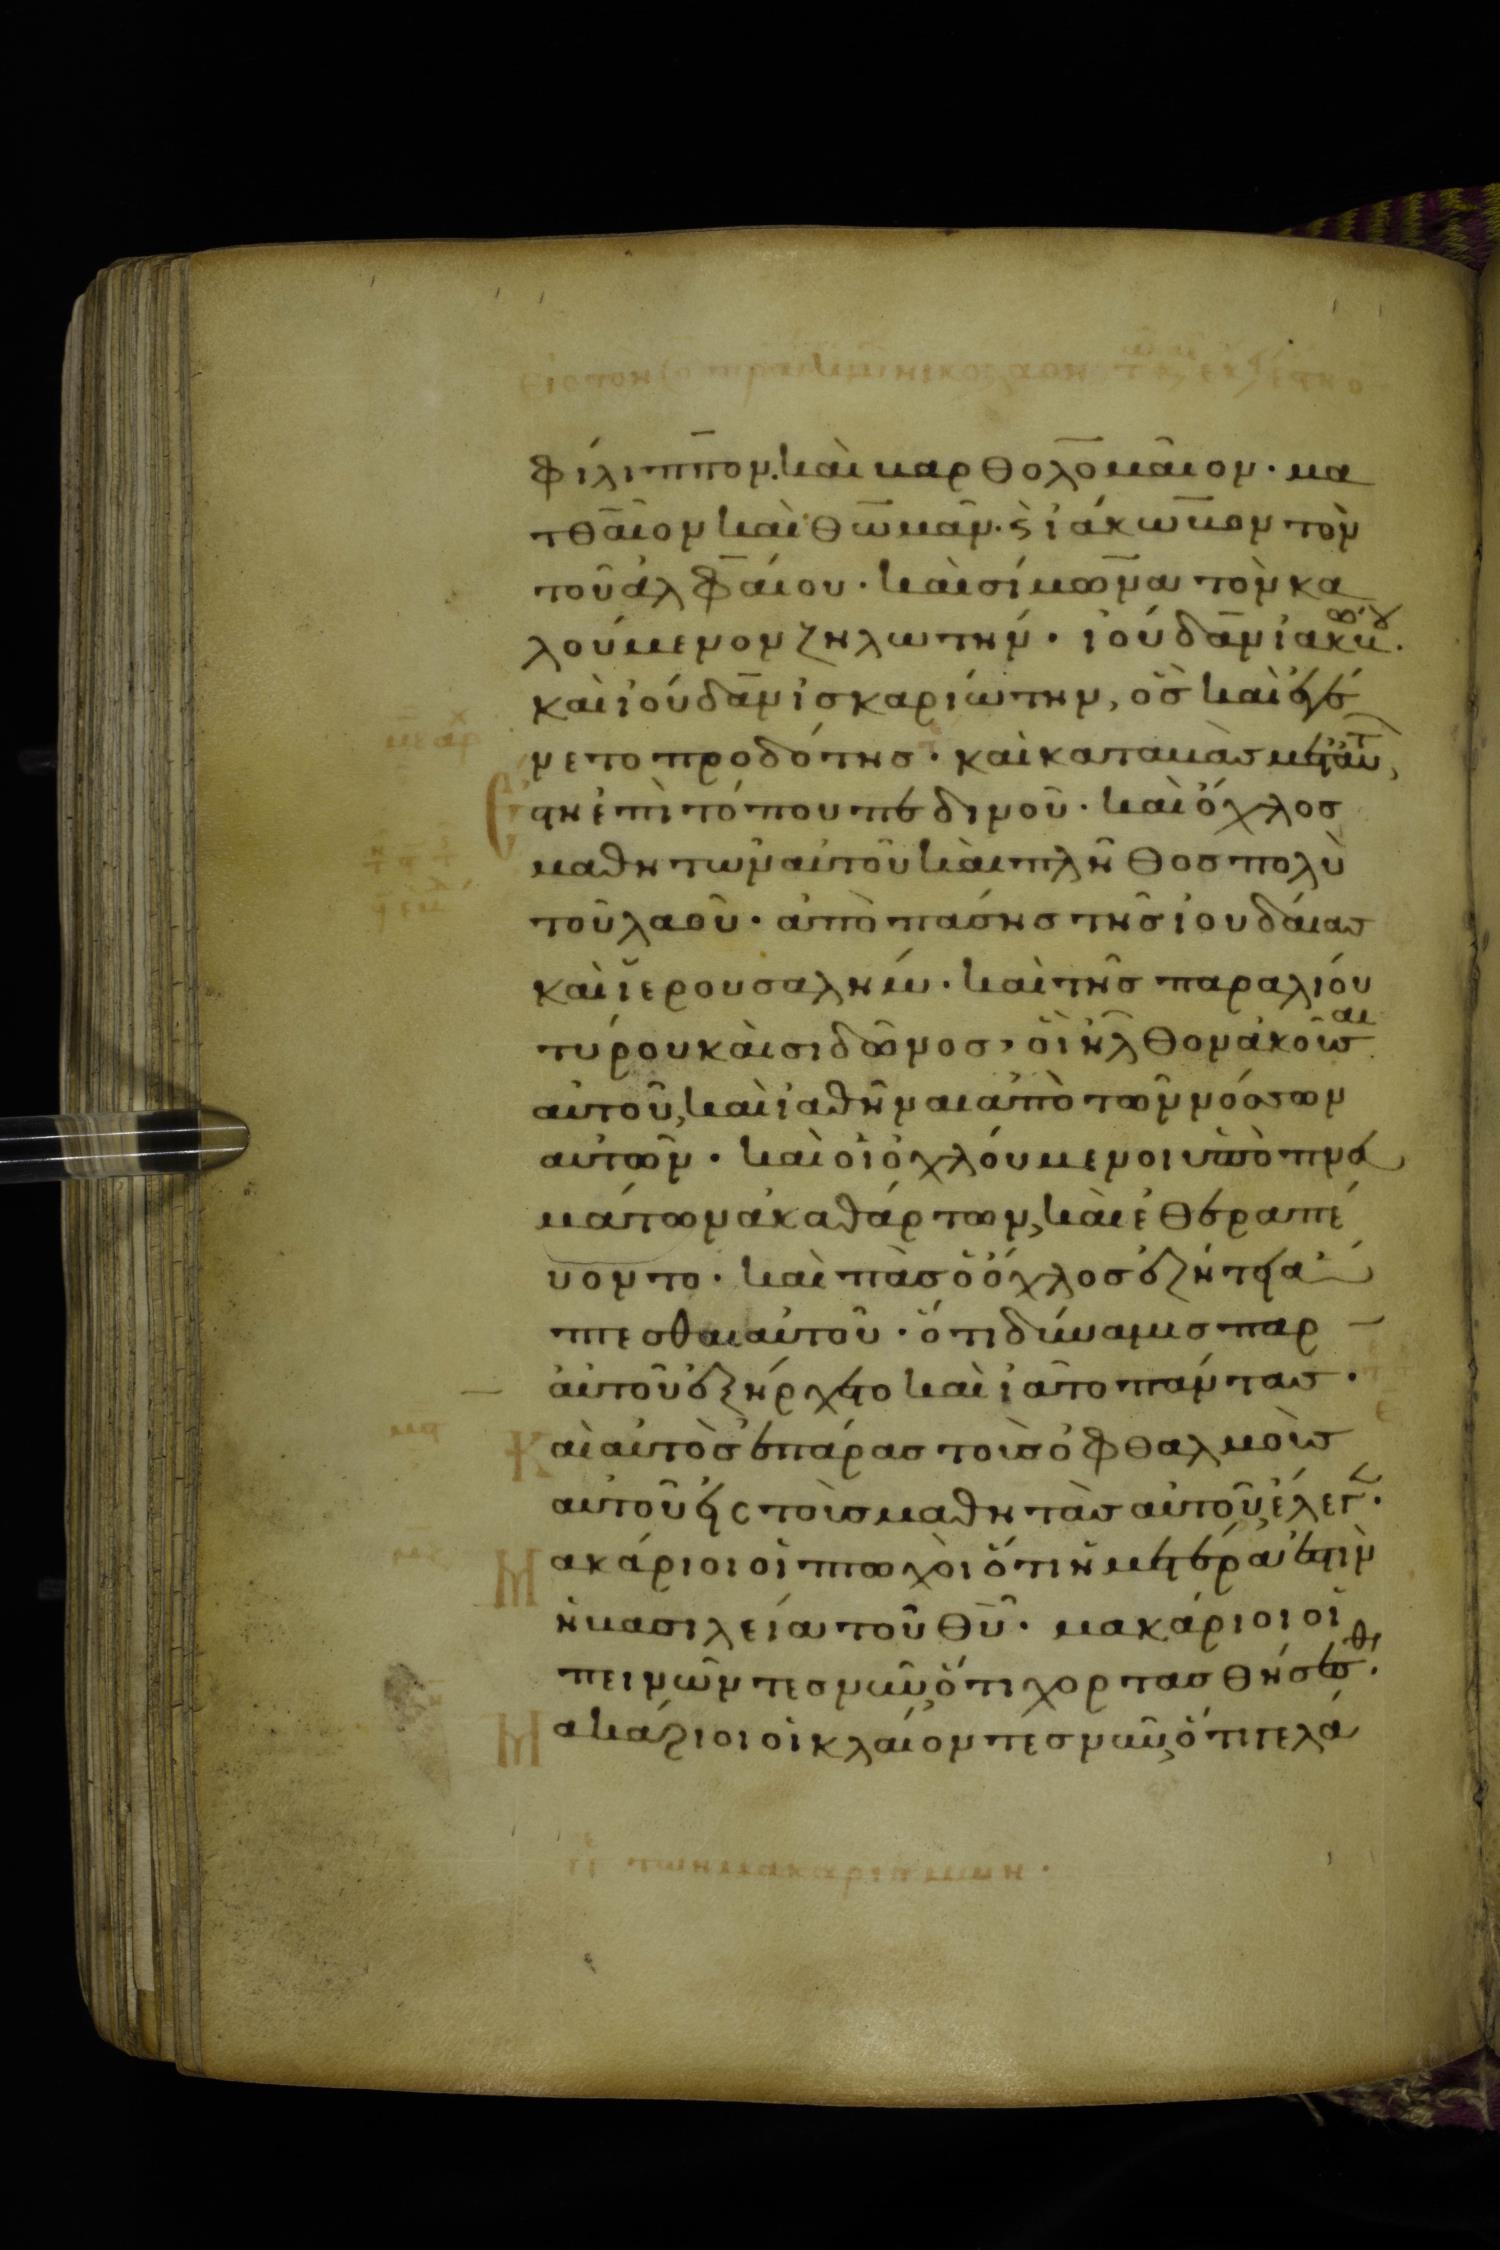 φίλιππον. καὶ βαρθολομαῖον· μα
τθαῖον καὶ θωμᾶν· ϛ ἰάκωβον τὸν
τοῦ ἀλφαίου· καὶ σίμωνα τὸν κα
λούμενον ζηλωτήν· ἰούδαν ἰακώβου.
καὶ ἰούδαν ἰσκαριώτην, ὃς καὶ ἐγέ
νετο προδότης· καὶ καταβὰς μετ' αὐτ,
ἔστη ἐπὶ τόπου πεδινοῦ· καὶ ὄχλος
μαθητῶν αὐτοῦ καὶ πλῆθος πολὺ
τοῦ λαοῦ· ἀπὸ πάσης τῆς ἰουδαίας
καὶ ἱερουσαλήμ· καὶ τῆς παραλίου
τύρου καὶ σιδῶνος, οἳ ἦλθον ἀκοῦσαι
αὐτοῦ, καὶ ἰαθῆναι ἀπὸ τῶν νόσων
αὐτῶν· καὶ οἱ ὀχλούμενοι ὑπὸ πνά
μάτων ἀκαθάρτων, καὶ ἐθεραπέ
υοντο· καὶ πᾶς ὁ ὄχλος ἐζήτει ἅ
πτεσθαι αὐτοῦ· ὅτι δύναμις παρ
αὐτοῦ ἐξήρχετο καὶ ἰᾶτο πάντας·
Καὶ αὐτὸς ἐπάρας τοὺς ὀφθαλμοὺς
αὐτοῦ εἰς τοὺς μαθητὰς αὐτοῦ, ἔλεγ·
Μακάριοι οἱ πτωχοὶ ὅτι ἡμετέρα ἐστὶν
ἡ βασιλεία τοῦ θῦ· μακάριοι οἱ
πεινῶντες νῦν, ὅτι χορτασθήσεσθ.
Μακάριοι οἱ κλαίοντες νῦν, ὅτι γελά
τῶν μακαρισμῶν·